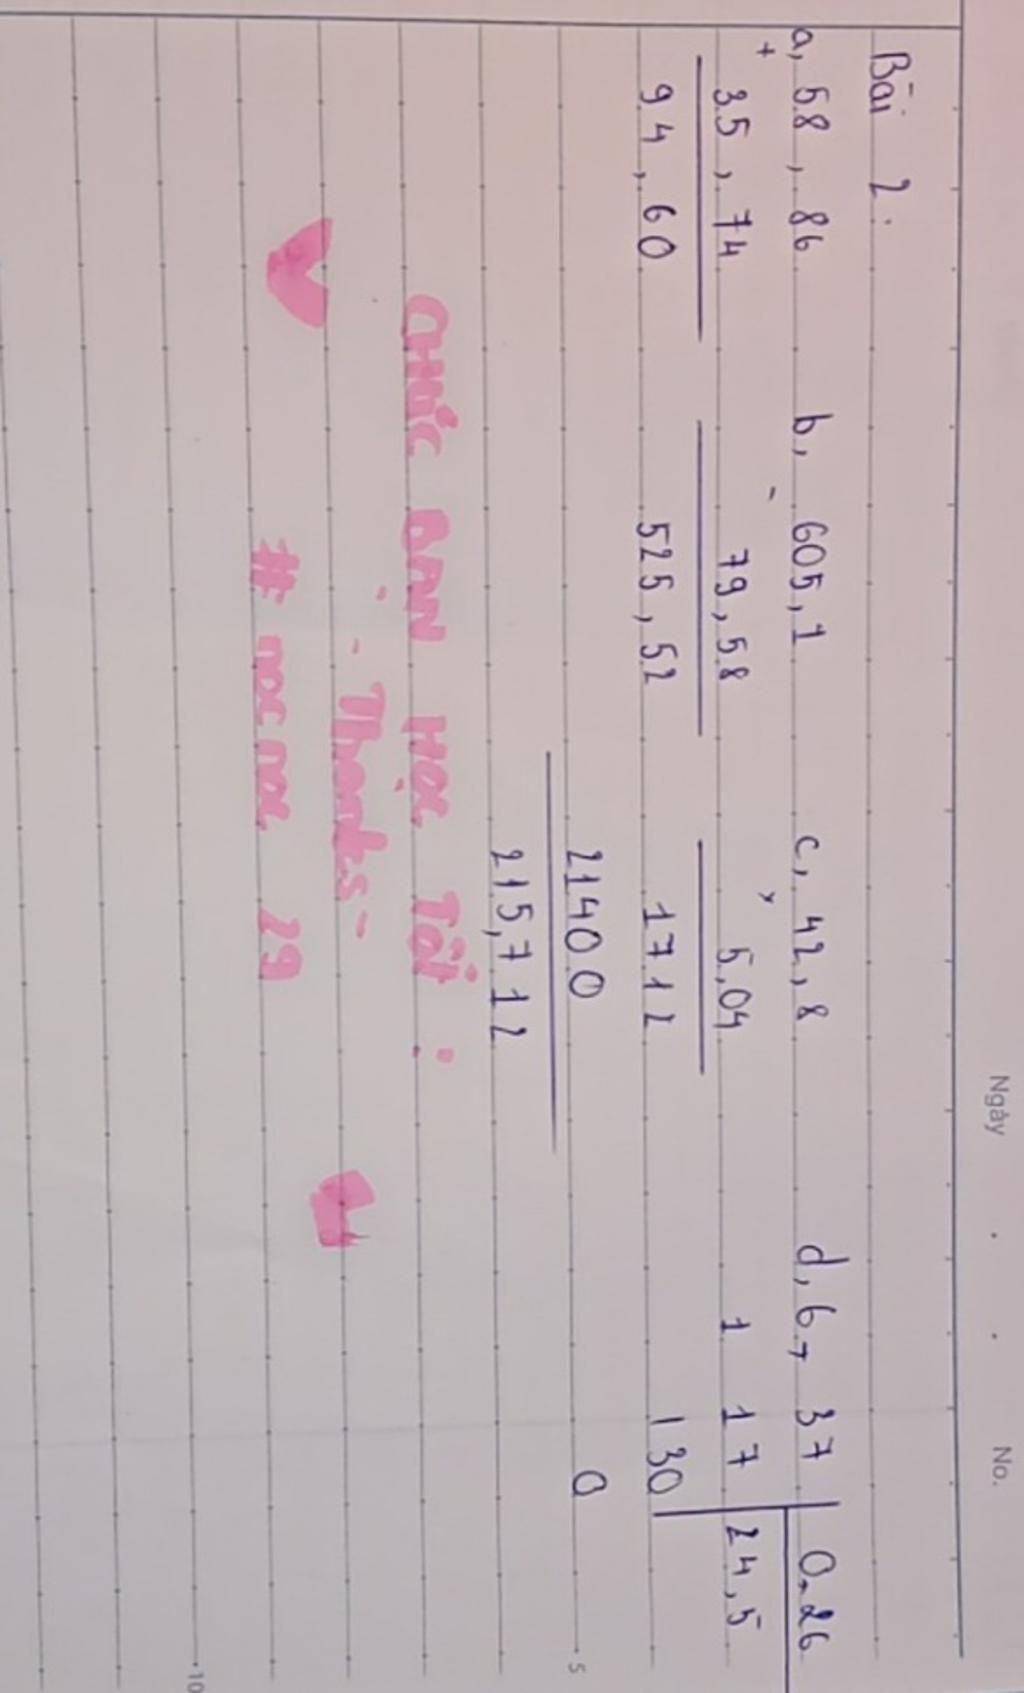 Ngày No.
Bài 2:
a, 58,86 b, 605,1 c, 42,8 d, 6,37 0,26
+ 35,74 - 79,58 x 5,04 1 17 24,5
94,60 525,52 1712 130
21400 0
215,712
CHÚC BẠN HỌC TỐT :
- Thanks -
# noc noc 29
5
10